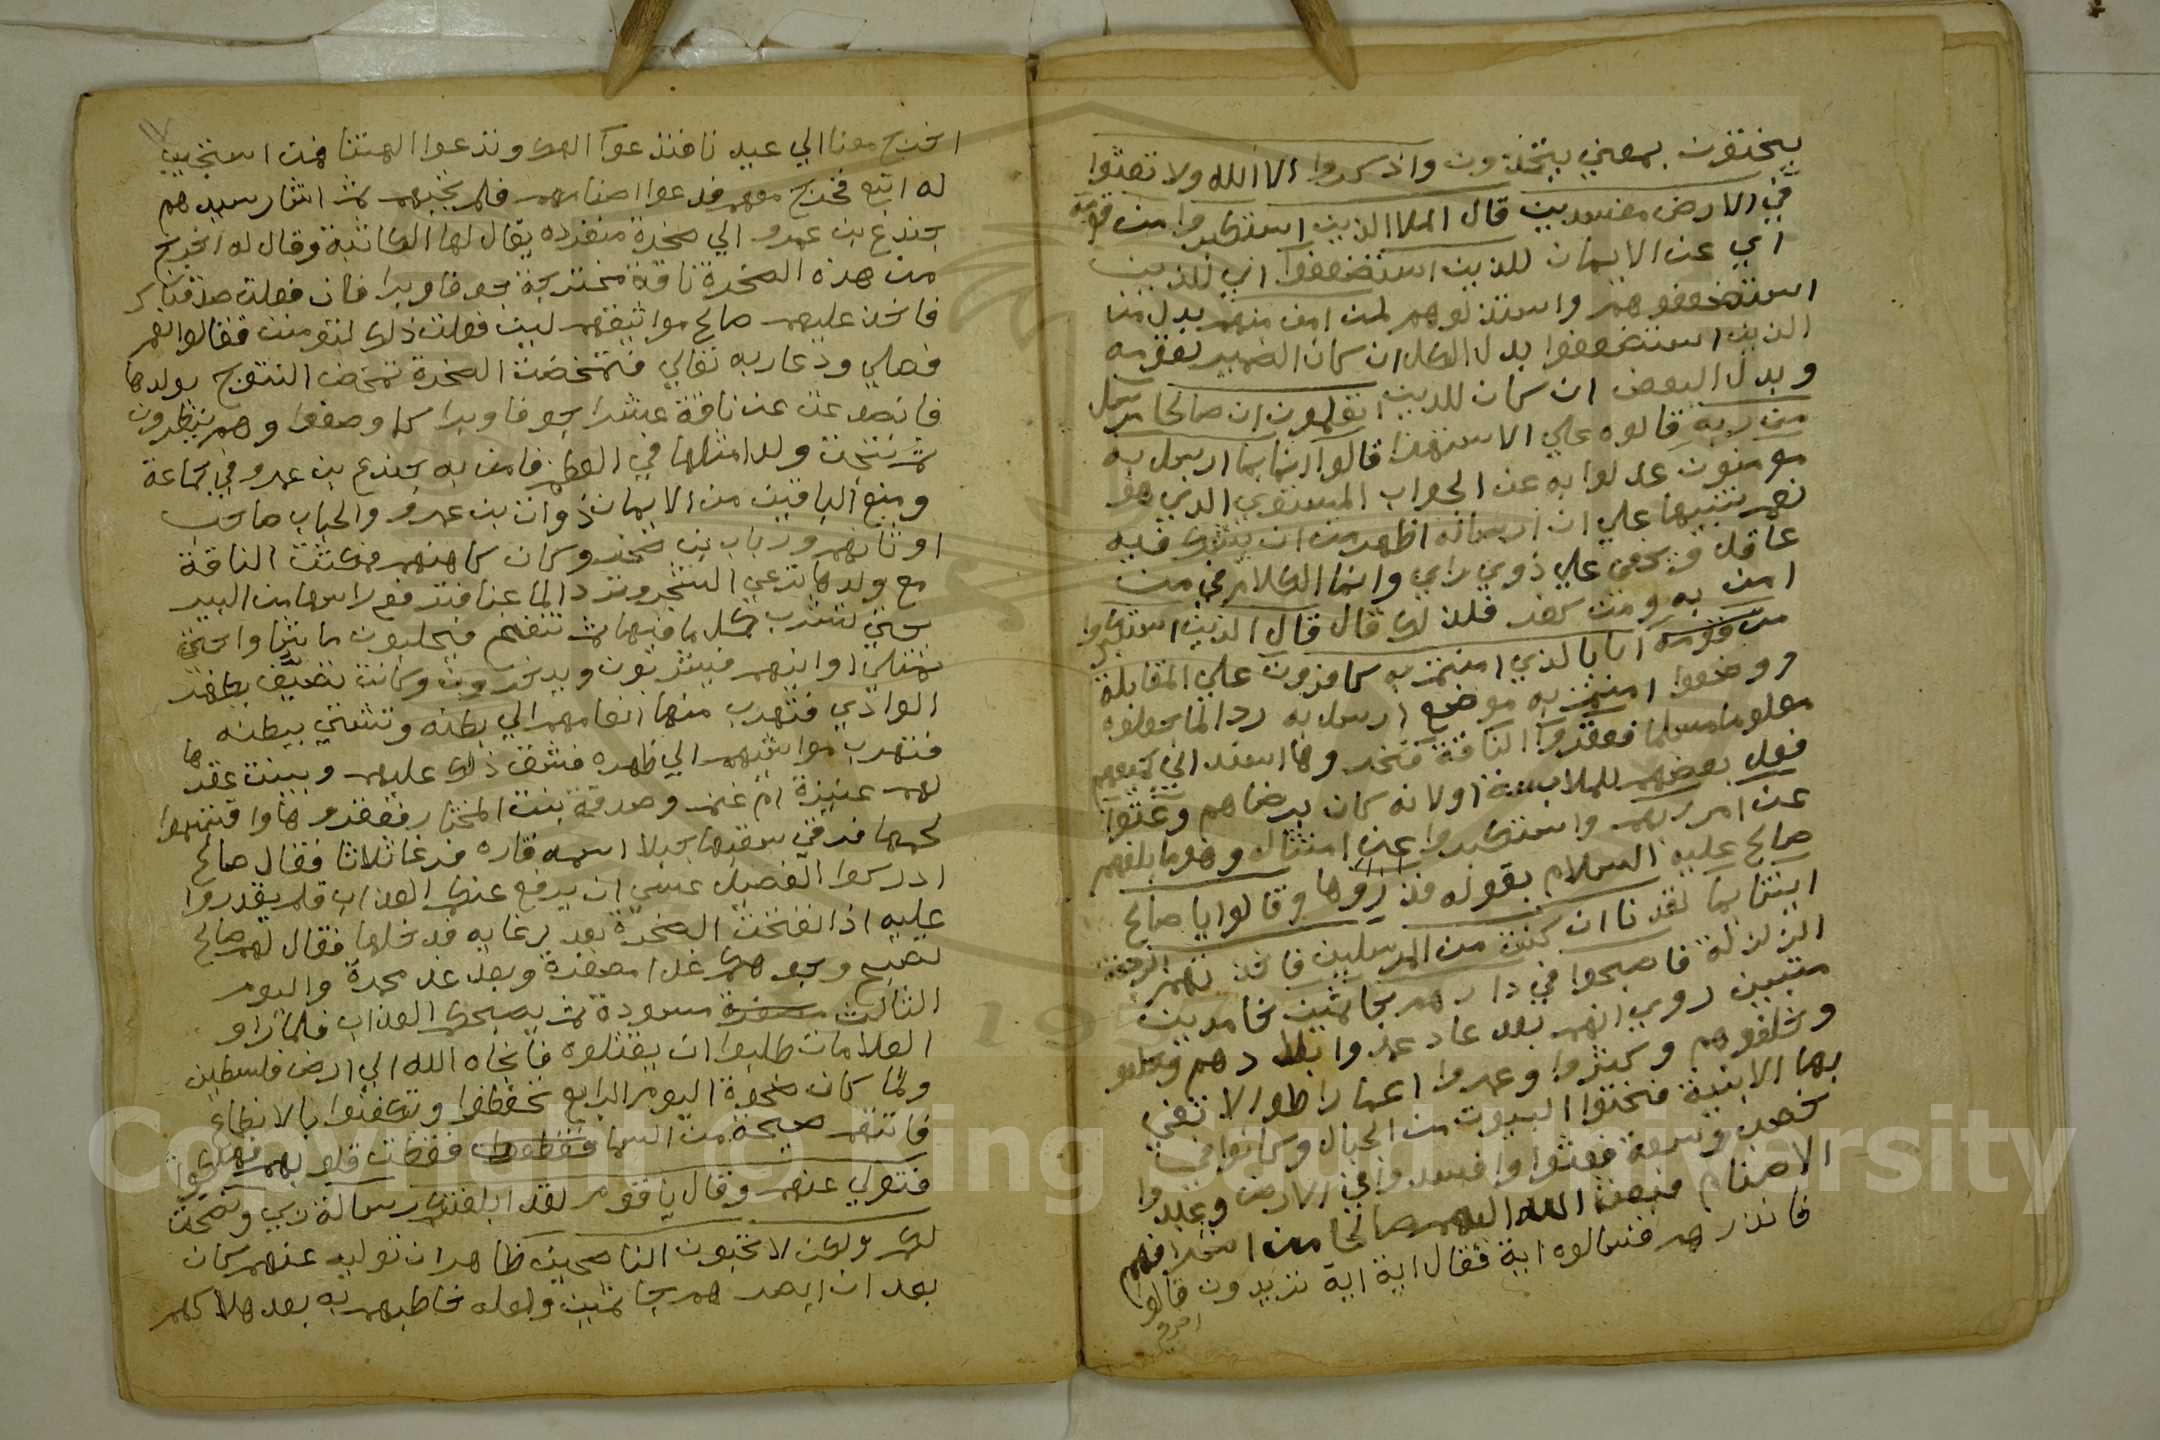 ينحتون بمعني يتخذون واذكروا الا الله ولا تعثوا
في الارض مفسدين قال الملا الذين استكبروا من قومه
اي عن الايمان للذين استضعفوا اي للذين
استضعفوهم واستذلوهم لمن امن منهم بدل من
الذين استضعفوا بدل الكل ان كان الضمير لقومه
وبدل البعض ان كان للذين اتعلمون ان صالحا مرسل
من ربه قالوه علي الاستهزا قالوا انا بما ارسل به
مومنون عدلوا به عن الجواب المستوي الذي هو
نعم تنبيها علي ان ارساله اظهر من ان يشك فيه
عاقل ويخفي علي ذوي راي وانما الكلام في من
امن به ومن كفر فلذلك قال قال الذين استكبروا
من قومه انا بالذي امنتم به كافرون علي المقابلة
ووضعوا امنتم به موضع ارسل به ردا لما جعلوه
معلوما مسلما فعقروا الناقة فنحروها اسند الي جميعهم
فعل بعضهم للملابسة اولانه كان برضاهم وعتوا
عن امر ربهم واستكبروا عن امتثاله وهو ما بلغهم
صالح عليه السلام بقوله فذروها وقالوا يا صالح
ايتنا بما تعدنا ان كنت من المرسلين فاخذتهم الرجفة
الزلزلة فاصبحوا في دارهم جاثمين خامدين
ميتين روي انهم بعد عاد عمروا بلادهم
وخلفوهم وكثروا وعمروا اعمارا طوالا تفي
بها الابنية فنحتوا البيوت من الجبال وكانوا في
خصب وسعة فعثوا وافسدوا في الارض وعبدوا
الاصنام فبعث الله اليهم صالحا من اشرافهم
فانذرهم فسالوه اية فقال اية اية تريدون قالوا
اخرج
اخرج معنا الي عيدنا فتدعوا الهك وندعوا الهتنا فمن استجيب
له اتبع فخرج معهم فدعوا اصنامهم فلم تجبهم ثم اشار سيدهم
جندع بن عمرو الي صخرة منفرده يقال لها الكاثبة وقال له اخرج
من هذه الصخرة ناقة مخترجة جوفا وبرا فان فعلت صدقناك
فاخذ عليهم صالح مواثيقهم لين فعلت ذلك لتومنن فقالوا نعم
فصلي ودعا ربه تعالي فتمخضت الصخرة تمخض النتوج بولدها
فانصدعت عن ناقة عشرا جوفا وبرا كما وصفوا وهم ينظرون
ثم نتجت ولدا مثلها في العظم فامن به جندع بن عمرو في جماعة
ومنع الباقين من الايمان ذوات بن عمرو والحباب صاحب
اوثانهم ورباب بن صخر وكان كاهنهم فمكثت الناقة
مع ولدها ترعي الشجر وترد الما غبا فترفع راسها من البير
حتي تشرب كل ما فيها ثم تتفحج فيحلبون ما شاوا حتي
تمتلي اوانيهم فيشربون ويدخرون وكانت تصيف بظهر
الوادي فتهرب منها انعامهم الي بطنه وتشتي ببطنه
فتهرب مواشيهم الي ظهره فشق ذلك عليهم وبينت عقرها
لهم عنيزة ام غنم وصدقة بنت المختار فعقروها واقتسموا
لحمها فرقي سقبها جبلا اسمه قاره فرغا ثلاثا فقال صالح
ادركوا الفصيل عسي ان يرفع عنكم العذاب فلم يقدروا
عليه اذ انفتحت الصخرة بعد رغايه فدخلها فقال لهم صالح
تصبح وجوهكم غدا مصفرة وبعد غد محمرة واليوم
الثالث مسودة ثم يصبحكم العذاب فلما راو
العلامات طلبوا ان يقتلوه فانجاه الله الي ارض فلسطين
ولما كان ضحوة اليوم الرابع تحنطوا وتكفنوا بالانطاع
فاتتهم صيحة من السما فقطعت قلوبهم فهلكوا
فتولي عنهم وقال يا قوم لقد ابلغتكم رسالة ربي ونصحت
لكم ولكن لا تحبون الناصحين ظاهره ان توليه عنهم كان
بعد ان ابصرهم جاثمين ولعله خاطبهم به بعد هلاكهم
Copyright © King Saud University